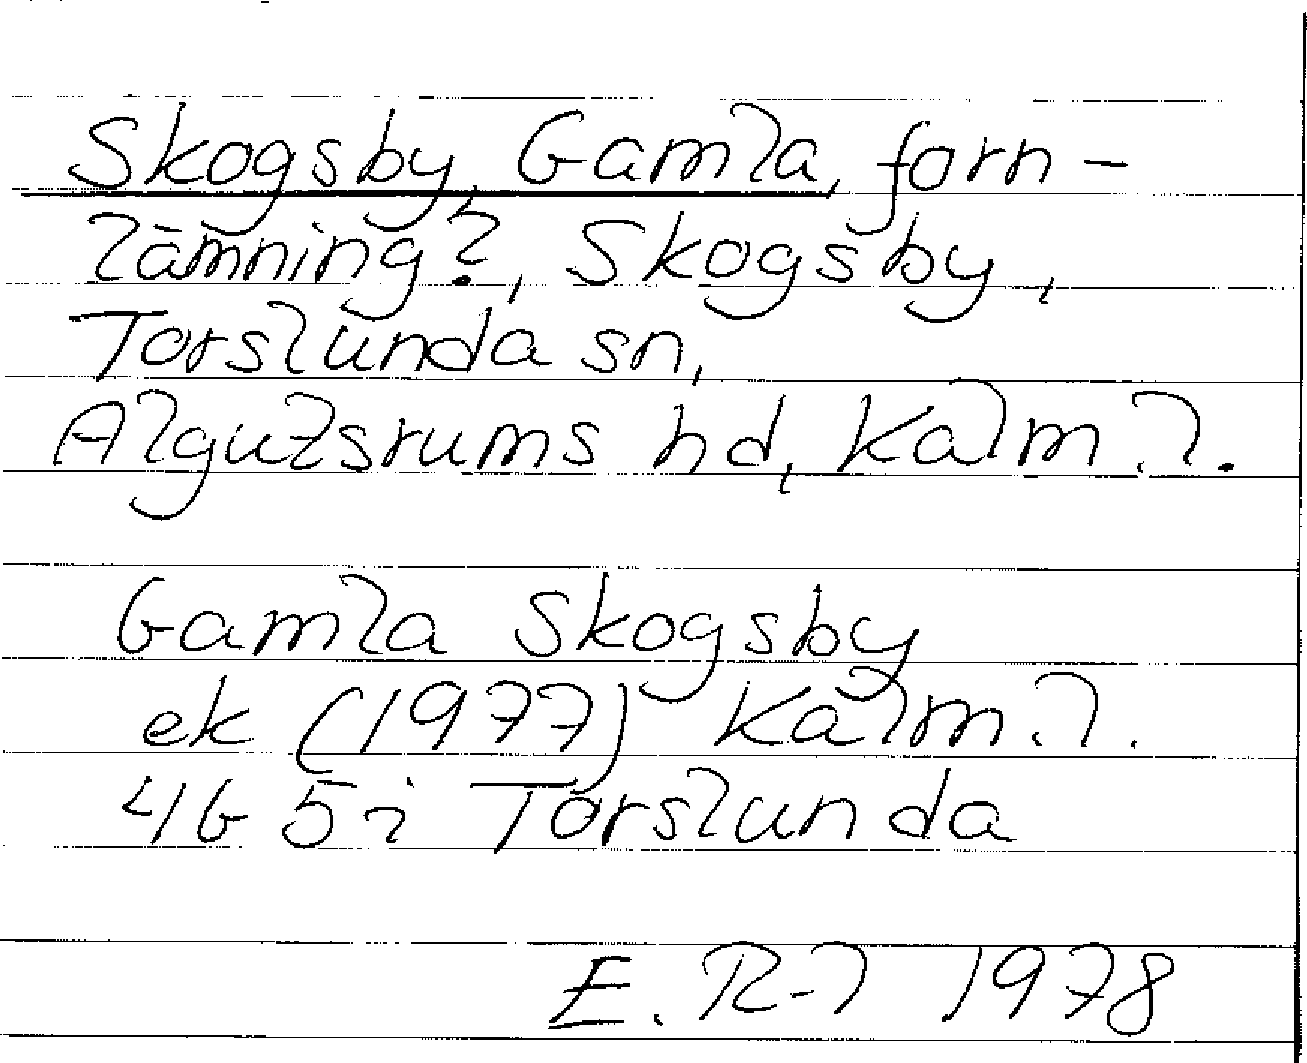 Skogsby, Gamla, forn-
lämning?, Skogsby,
Torslunda sn,
Algutsrums hd, Kalm. l.
Gamla Skogsby
ek (1977) Kalm. l.
4G 5i Torslunda
E. R-l 1978